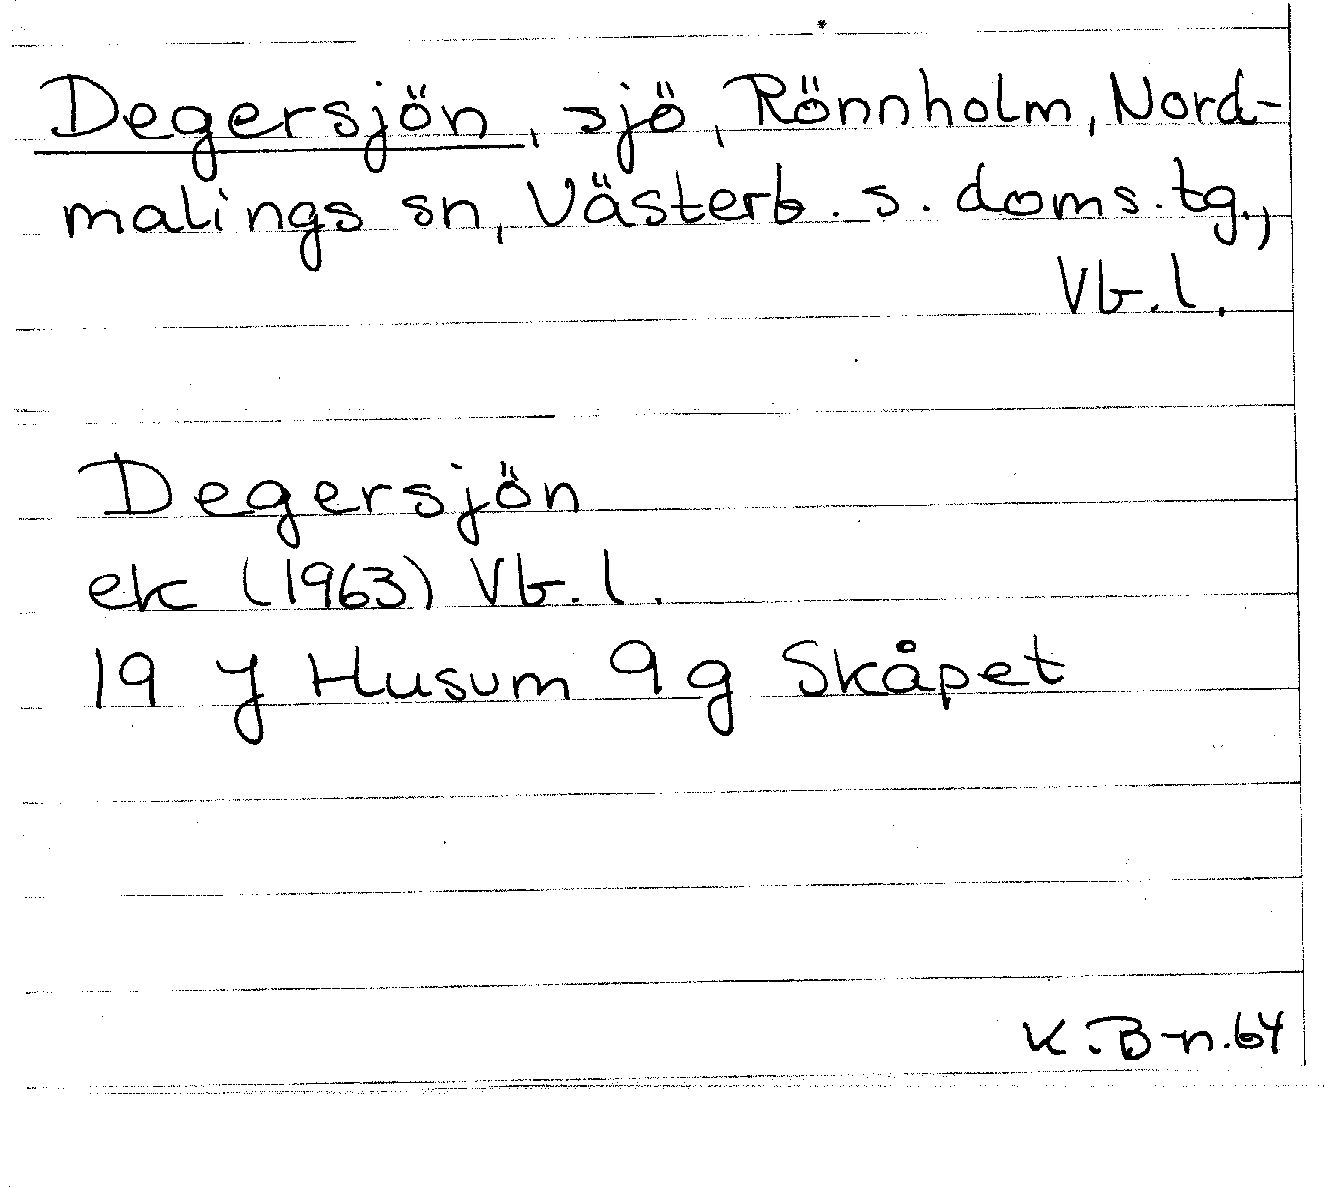 Degersjön, sjö, Rönnholm, Nord-
malings sn, Västerb. s. doms. tg.,
Vb. l.
Degersjön
ek (1963) Vb. l.
19 J Husum 9 g Skåpet
K. B-n. 64